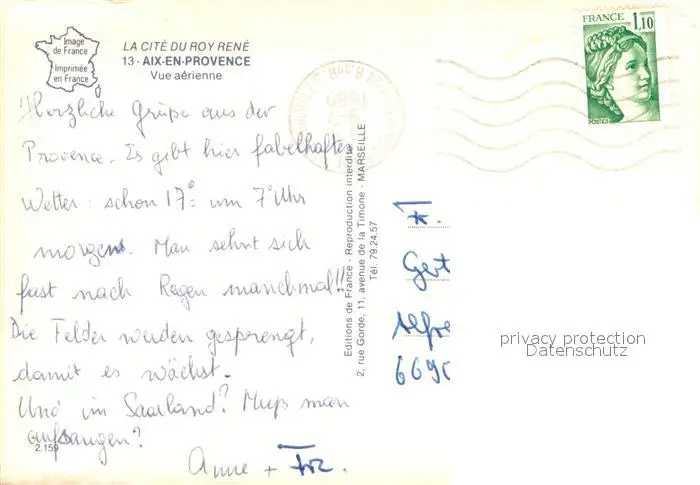 Image
de France
Imprimée
en France
LA CITÉ DU ROY RENÉ
13 - AIX-EN-PROVENCE
Vue aérienne
FRANCE
1,10
POSTES
1980
Herzliche Grüße aus der
Provence. Es gibt hier fabelhaftes
Wetter: schon 17° um 7° Uhr
morgens. Man sehnt sich
fast nach Regen manchmal!!
Die Felder werden gesprengt,
damit es wächst.
Und im Saarland? Muß man
aufsaugen?
Anne +
2.159
Editions de France - Reproduction interdite
2, rue Gorde, 11, avenue de la Timone - MARSEILLE
Tél. 79.24.57
Fr.
Gert
Alfre
669
privacy protection
Datenschutz